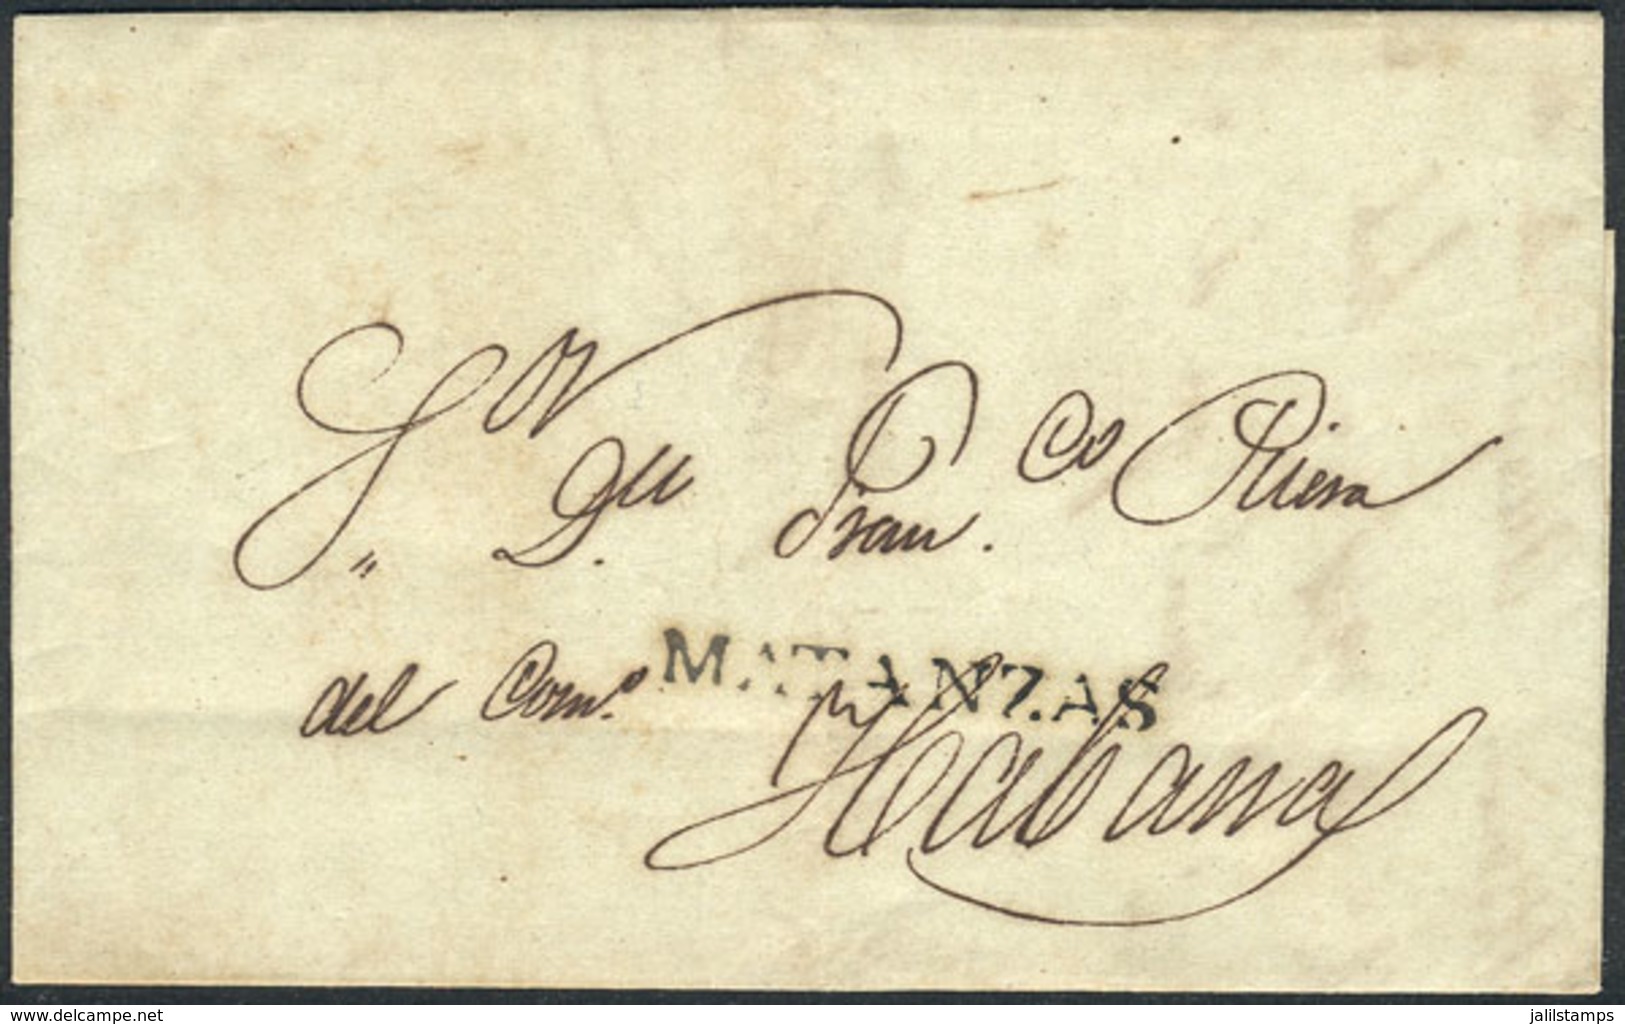 Sor. Dn. Franco. Riera
del Como.
MATANZAS
Habana
www.delcampe.net
jalilstamps